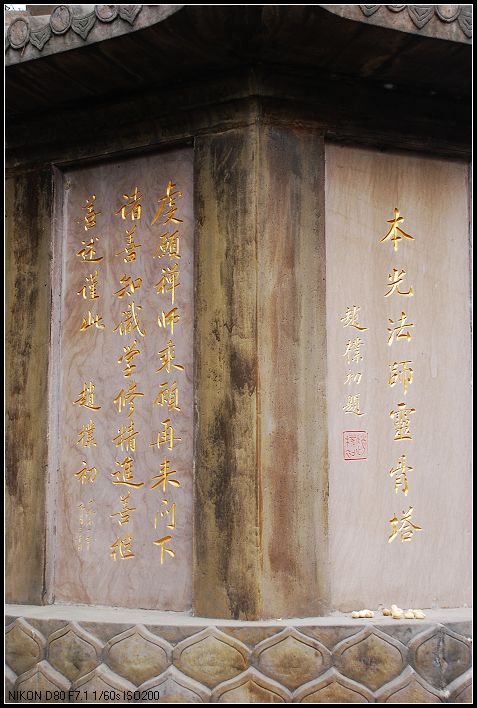 本光法師靈骨塔
趙樸初題
虔願禅師乘願再来门下
诸善知識学修精進善继
善述谨此 趙樸初
NIKON D80 F7.1 1/60s ISO200